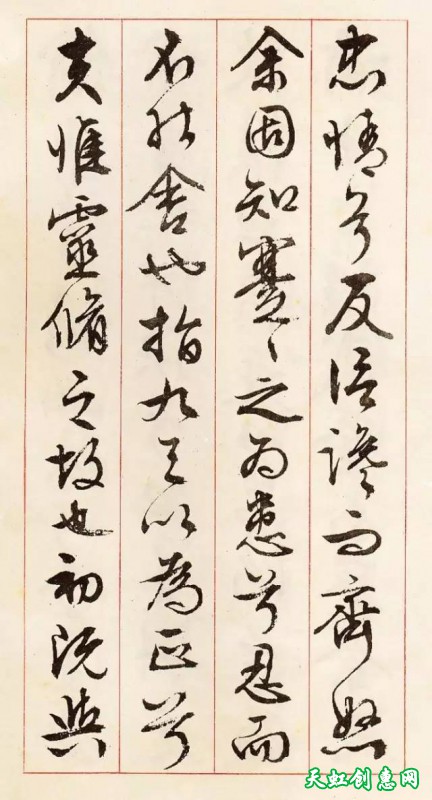 忠情兮反信讒而齊怒
余固知謇々之為患兮忍而
不能舍也指九天以為正兮
夫惟靈脩之故也初既與
天虹创惠网